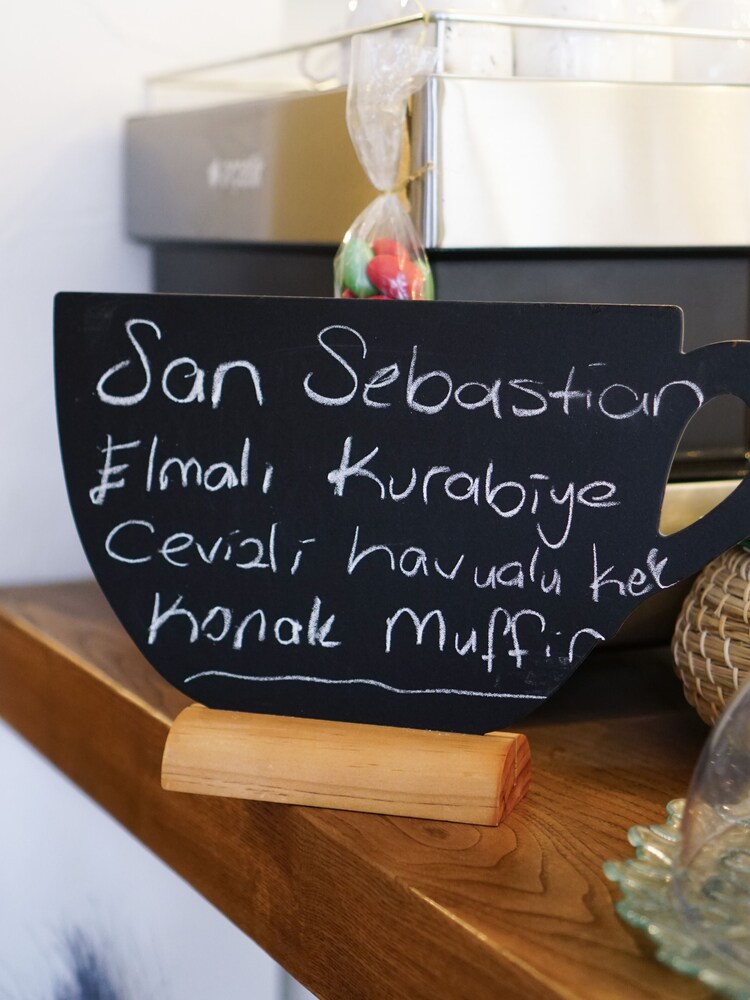 San Sebastian
Elmalı Kurabiye
Cevizli havualu kek
Konak Muffin